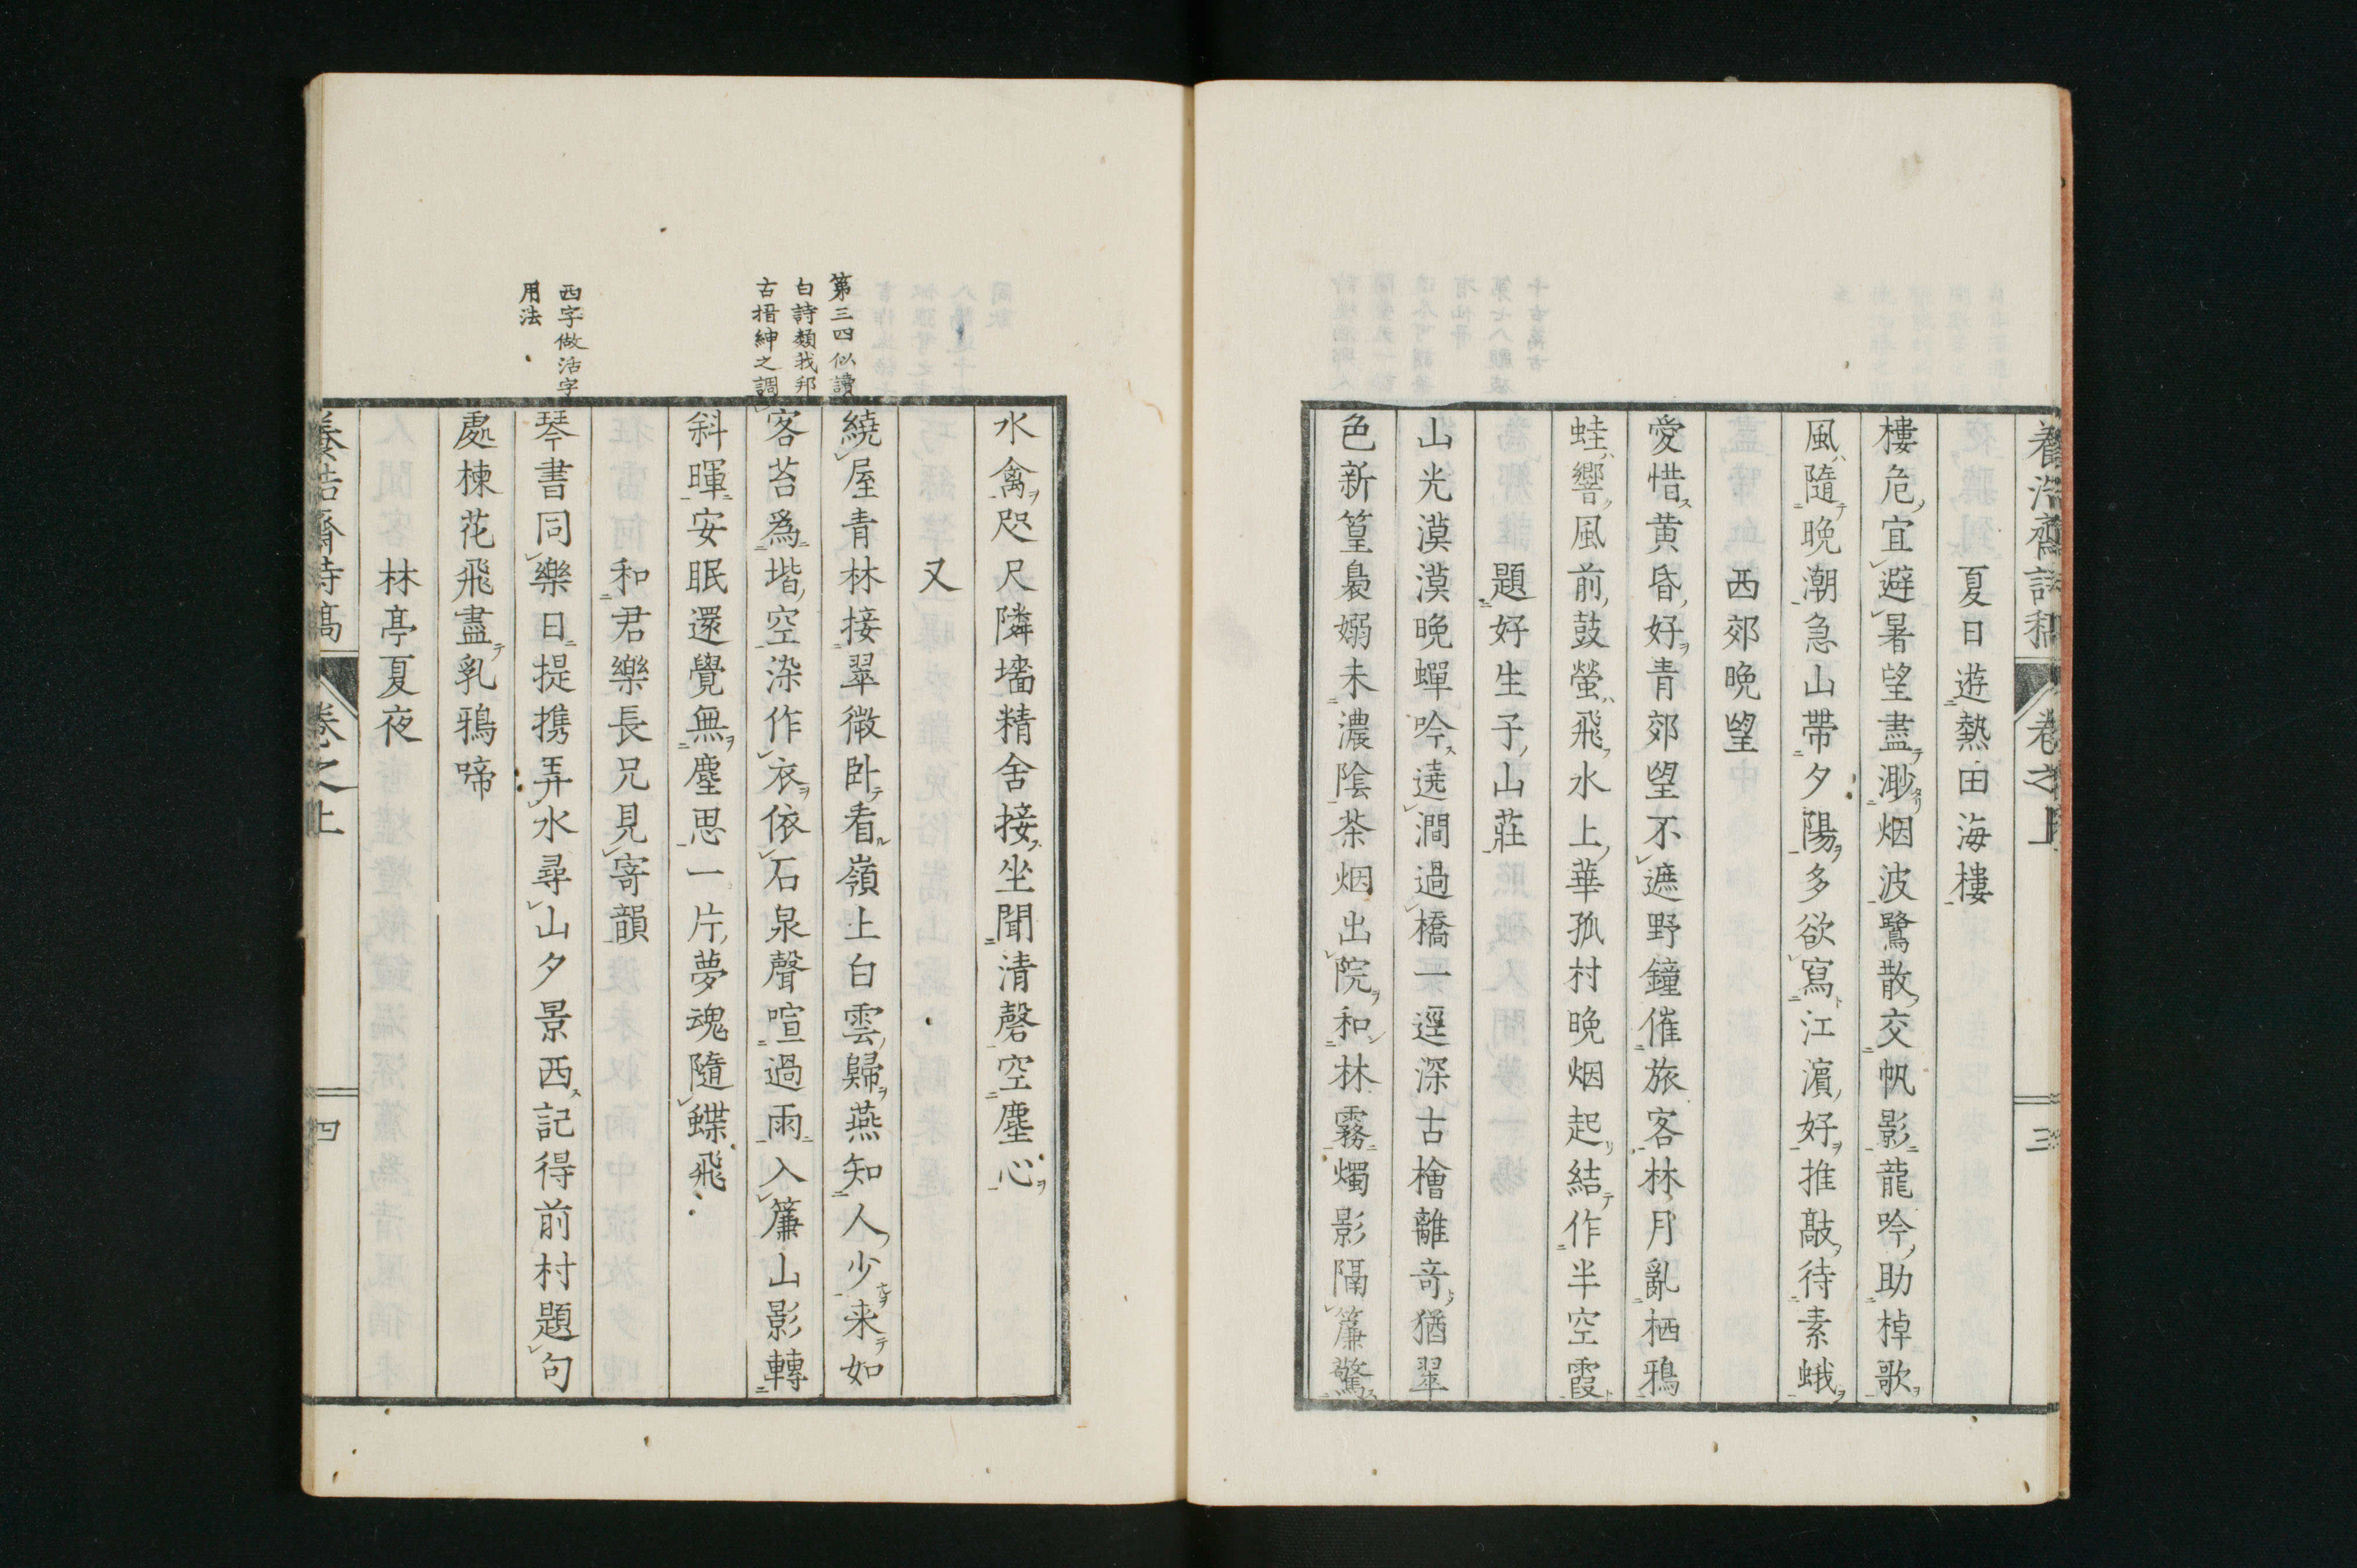 養浩齋詩稿 卷之上 三
夏日遊熱田海樓
樓危宜避暑望盡渺烟波鷺散交帆影龍吟助棹歌
風隨晩潮急山帶夕陽多欲寫江濱好推敲待素蛾
西郊晩望
愛惜黄昏好青郊望不遮野鐘催旅客林月亂栖鴉
蛙響風前鼓螢飛水上華孤村晩烟起結作半空霞
題好生子山莊
山光漠漠晩蟬吟遶澗過橋一逕深古檜離奇猶翠
色新篁裊嫋未濃陰茶烟出院和林霧燭影隔簾驚
水禽咫尺隣墻精舍接坐聞清磬空塵心
又
繞屋青林接翠微卧看嶺上白雲歸燕知人少来如
客苔爲堦空染作衣依石泉聲喧過雨入簾山影轉
斜暉安眠還覺無塵思一片夢魂隨蝶飛
和君樂長兄見寄韻
琴書同樂日提携弄水尋山夕景西記得前村題句
處楝花飛盡乳鴉啼
林亭夏夜
養浩齋詩稿 卷之上 四
第三四似讀
白詩類我邦
古搢紳之調
西字做活字
用法